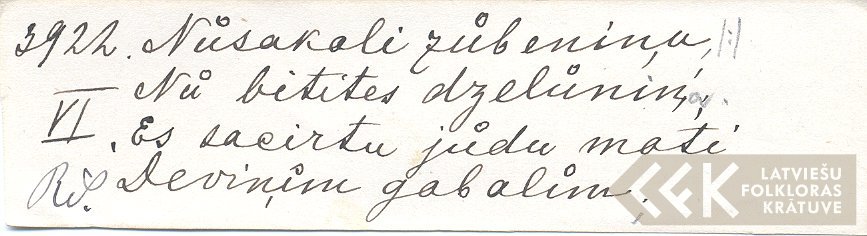 3922. Nůsakali zůbeniņu, |:|
VI Nů bitites dzelůniņ,
Es sacirtu jůdu mati
Rš. Deviņim gabalim,
LATVIEŠU
FOLKLORAS
KRĀTUVE